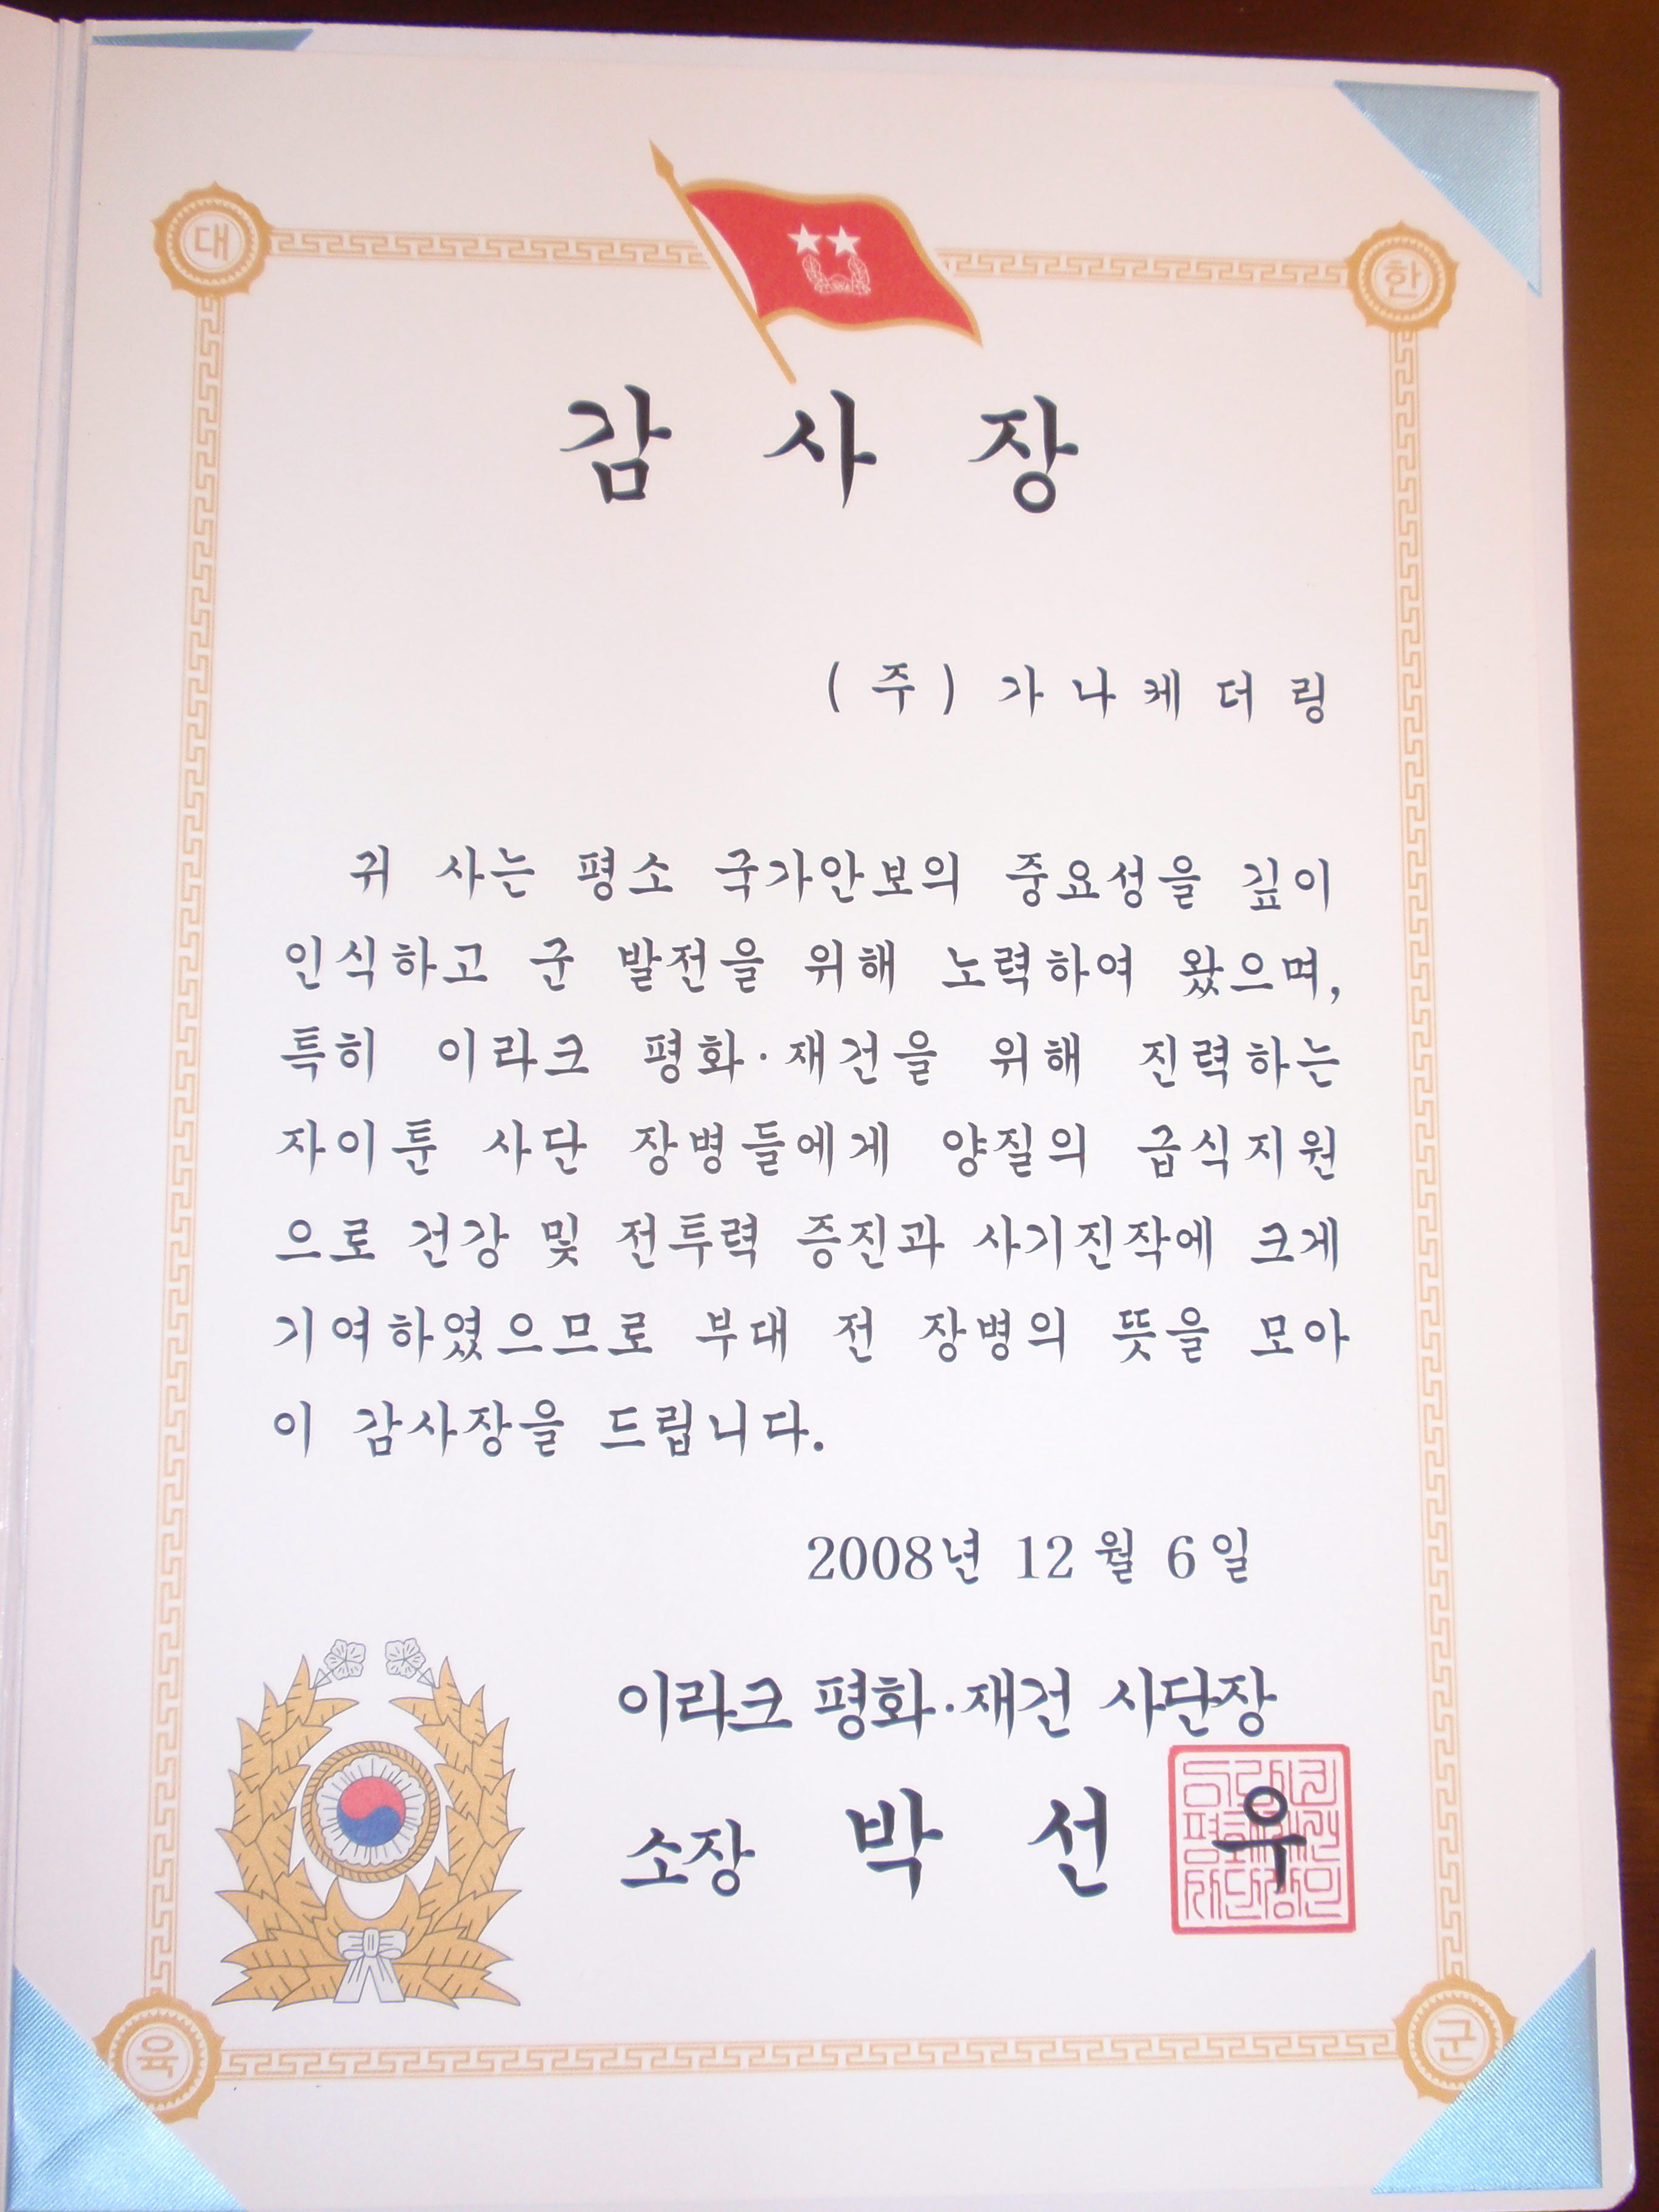 대 한
감 사 장
(주) 가나케더링
귀 사는 평소 국가안보의 중요성을 깊이
인식하고 군 발전을 위해 노력하여 왔으며,
특히 이라크 평화·재건을 위해 진력하는
자이툰 사단 장병들에게 양질의 급식지원
으로 건강 및 전투력 증진과 사기진작에 크게
기여하였으므로 부대 전 장병의 뜻을 모아
이 감사장을 드립니다.
2008년 12월 6일
이라크 평화·재건 사단장
소장 박 선 우
육 군